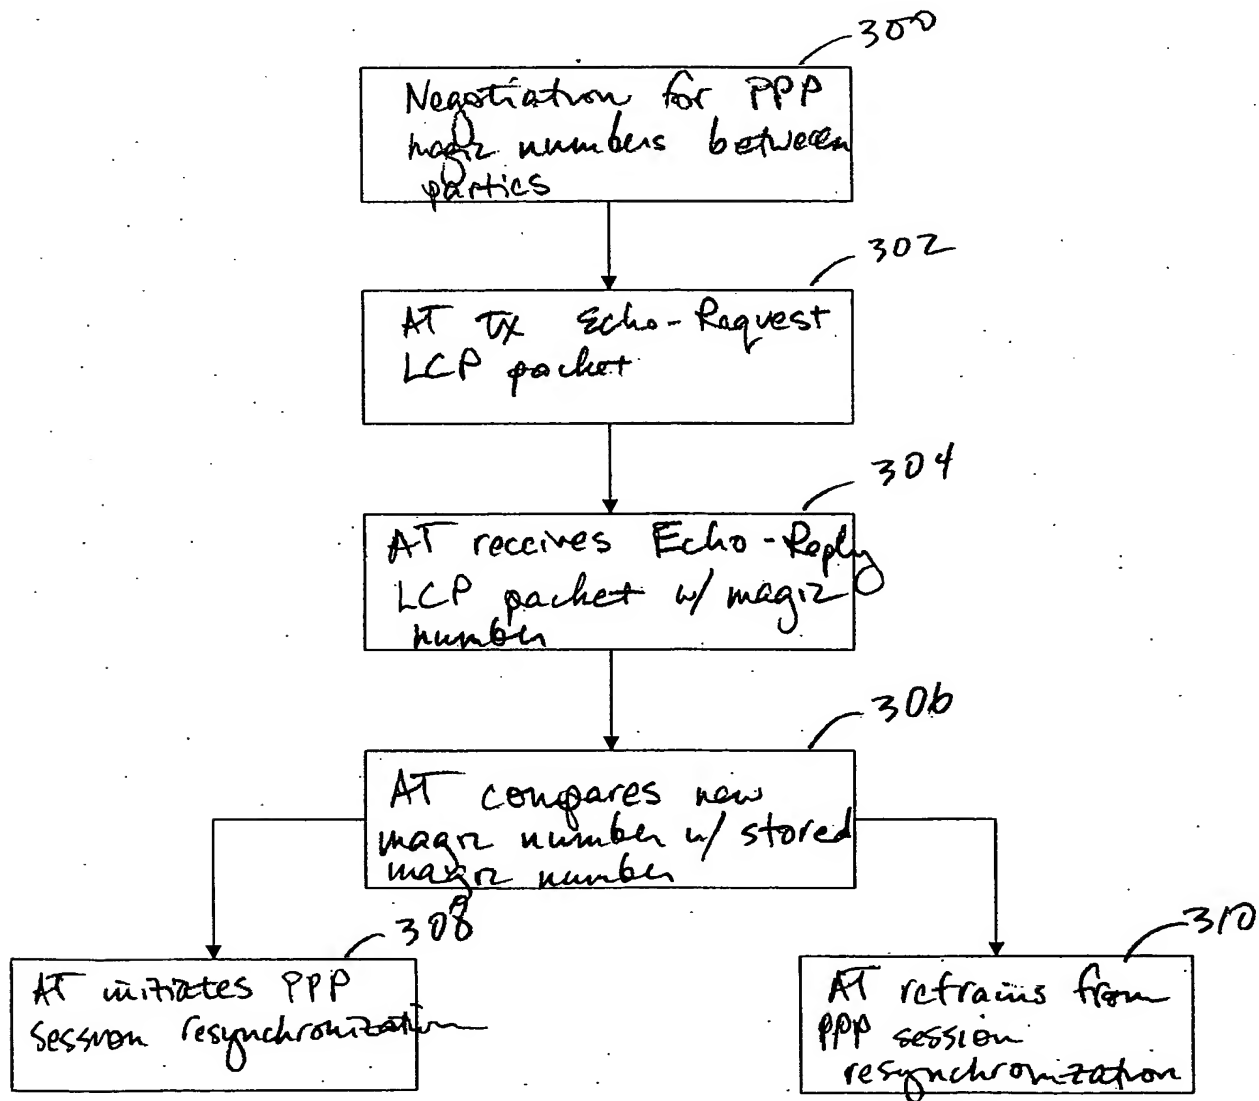 300
Negotiation for PPP
magic numbers between
parties
302
AT TX Echo-Request
LCP packet
304
AT receives Echo-Reply
LCP packet w/ magic
number
306
AT compares new
magic number w/ stored
magic number
308
AT initiates PPP
session resynchronization
310
AT refrains from
PPP session
resynchronization